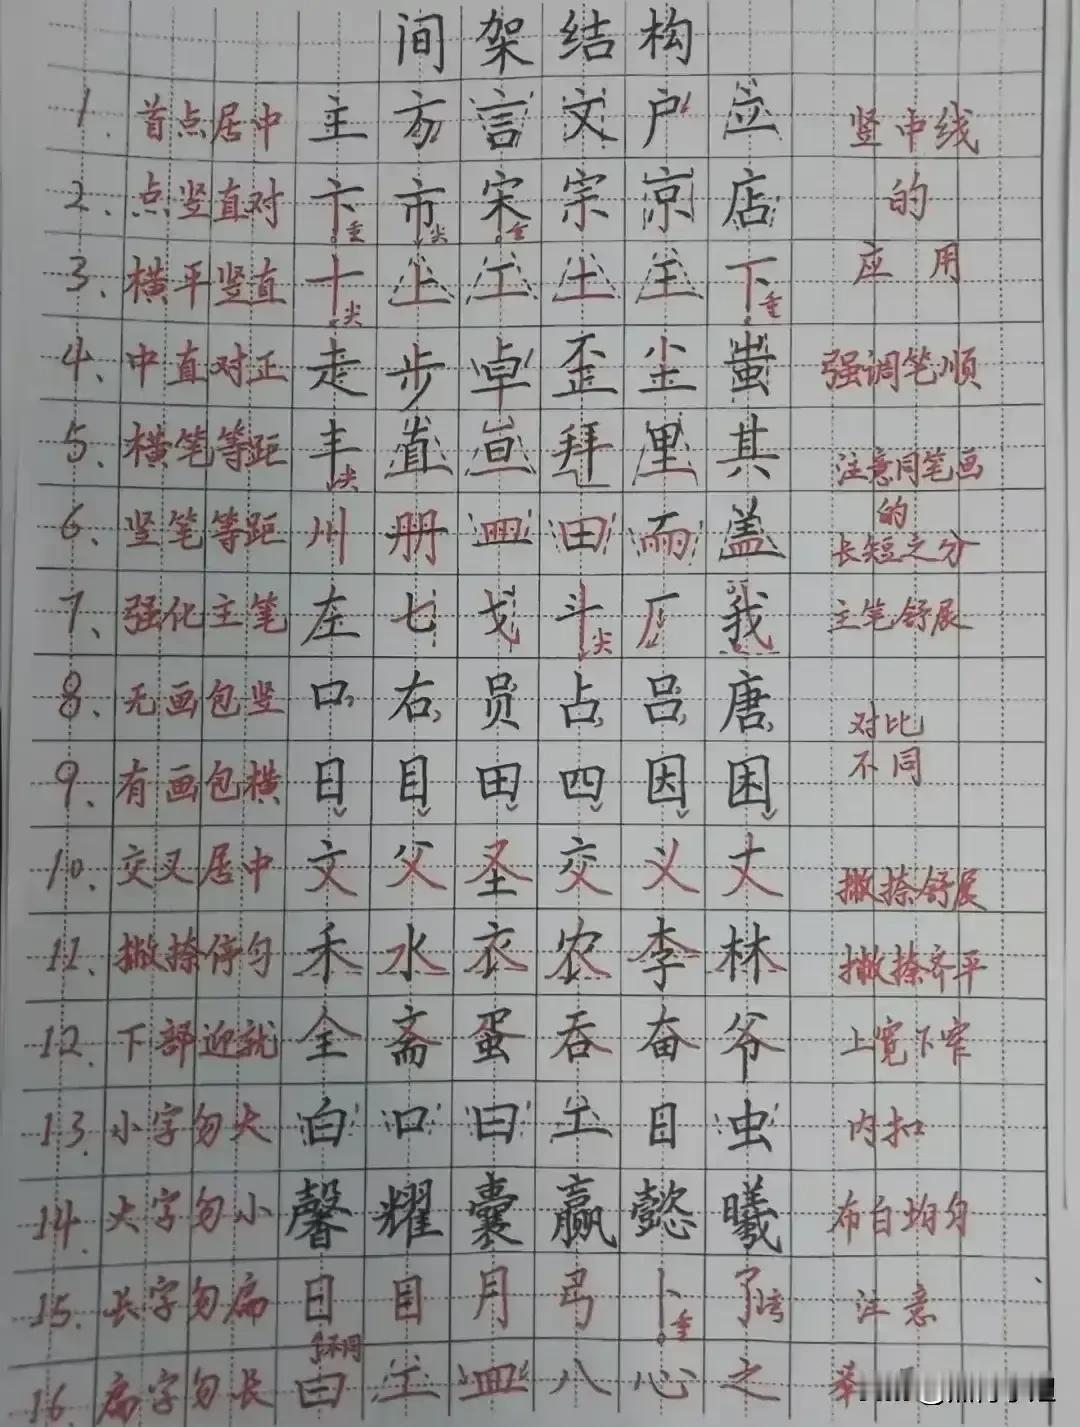 间架结构
1. 首点居中 主 方 言 文 户 应 竖中线
2. 点竖直对 卞 市 宋 宗 京 店 的
垂 尖 垂
3. 横平竖直 十 上 工 土 王 下 应用
尖 垂
4. 中直对正 走 步 卓 歪 尘 蚩 强调笔顺
5. 横笔等距 丰 直 亘 拜 里 其 注意同笔画
尖
6. 竖笔等距 州 册 皿 田 而 盖 的
长短之分
7. 强化主笔 左 七 戈 斗 厂 我 主笔舒展
尖
8. 无画包竖 口 右 员 占 吕 唐 对比
9. 有画包横 日 目 田 四 因 困 不同
10. 交叉居中 文 父 圣 交 义 丈 撇捺舒展
11. 撇捺停匀 禾 水 衣 农 李 林 撇捺齐平
12. 下部迎就 全 斋 蛋 吞 奋 爷 上宽下窄
13. 小字勿大 白 口 曰 工 目 虫 内扣
14. 大字勿小 馨 耀 囊 赢 懿 曦 布白均匀
15. 长字勿扁 日 目 月 弓 卜 了 注意
不同 垂 弯
16. 扁字勿长 曰 工 皿 八 心 之